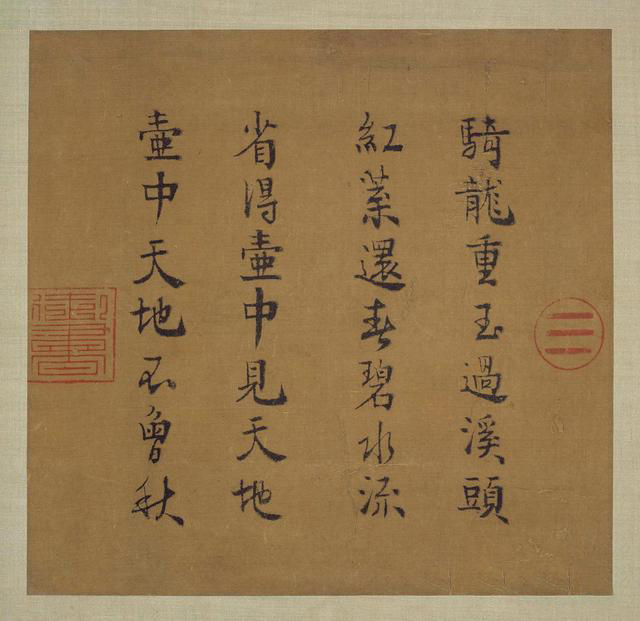 騎龍重玉過溪頭
紅葉還春碧水流
省得壺中見天地
壺中天地不曾秋
☰
御書